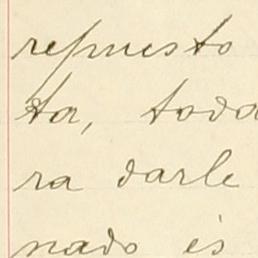 repuesto
ta, toda
ra darle
nado és